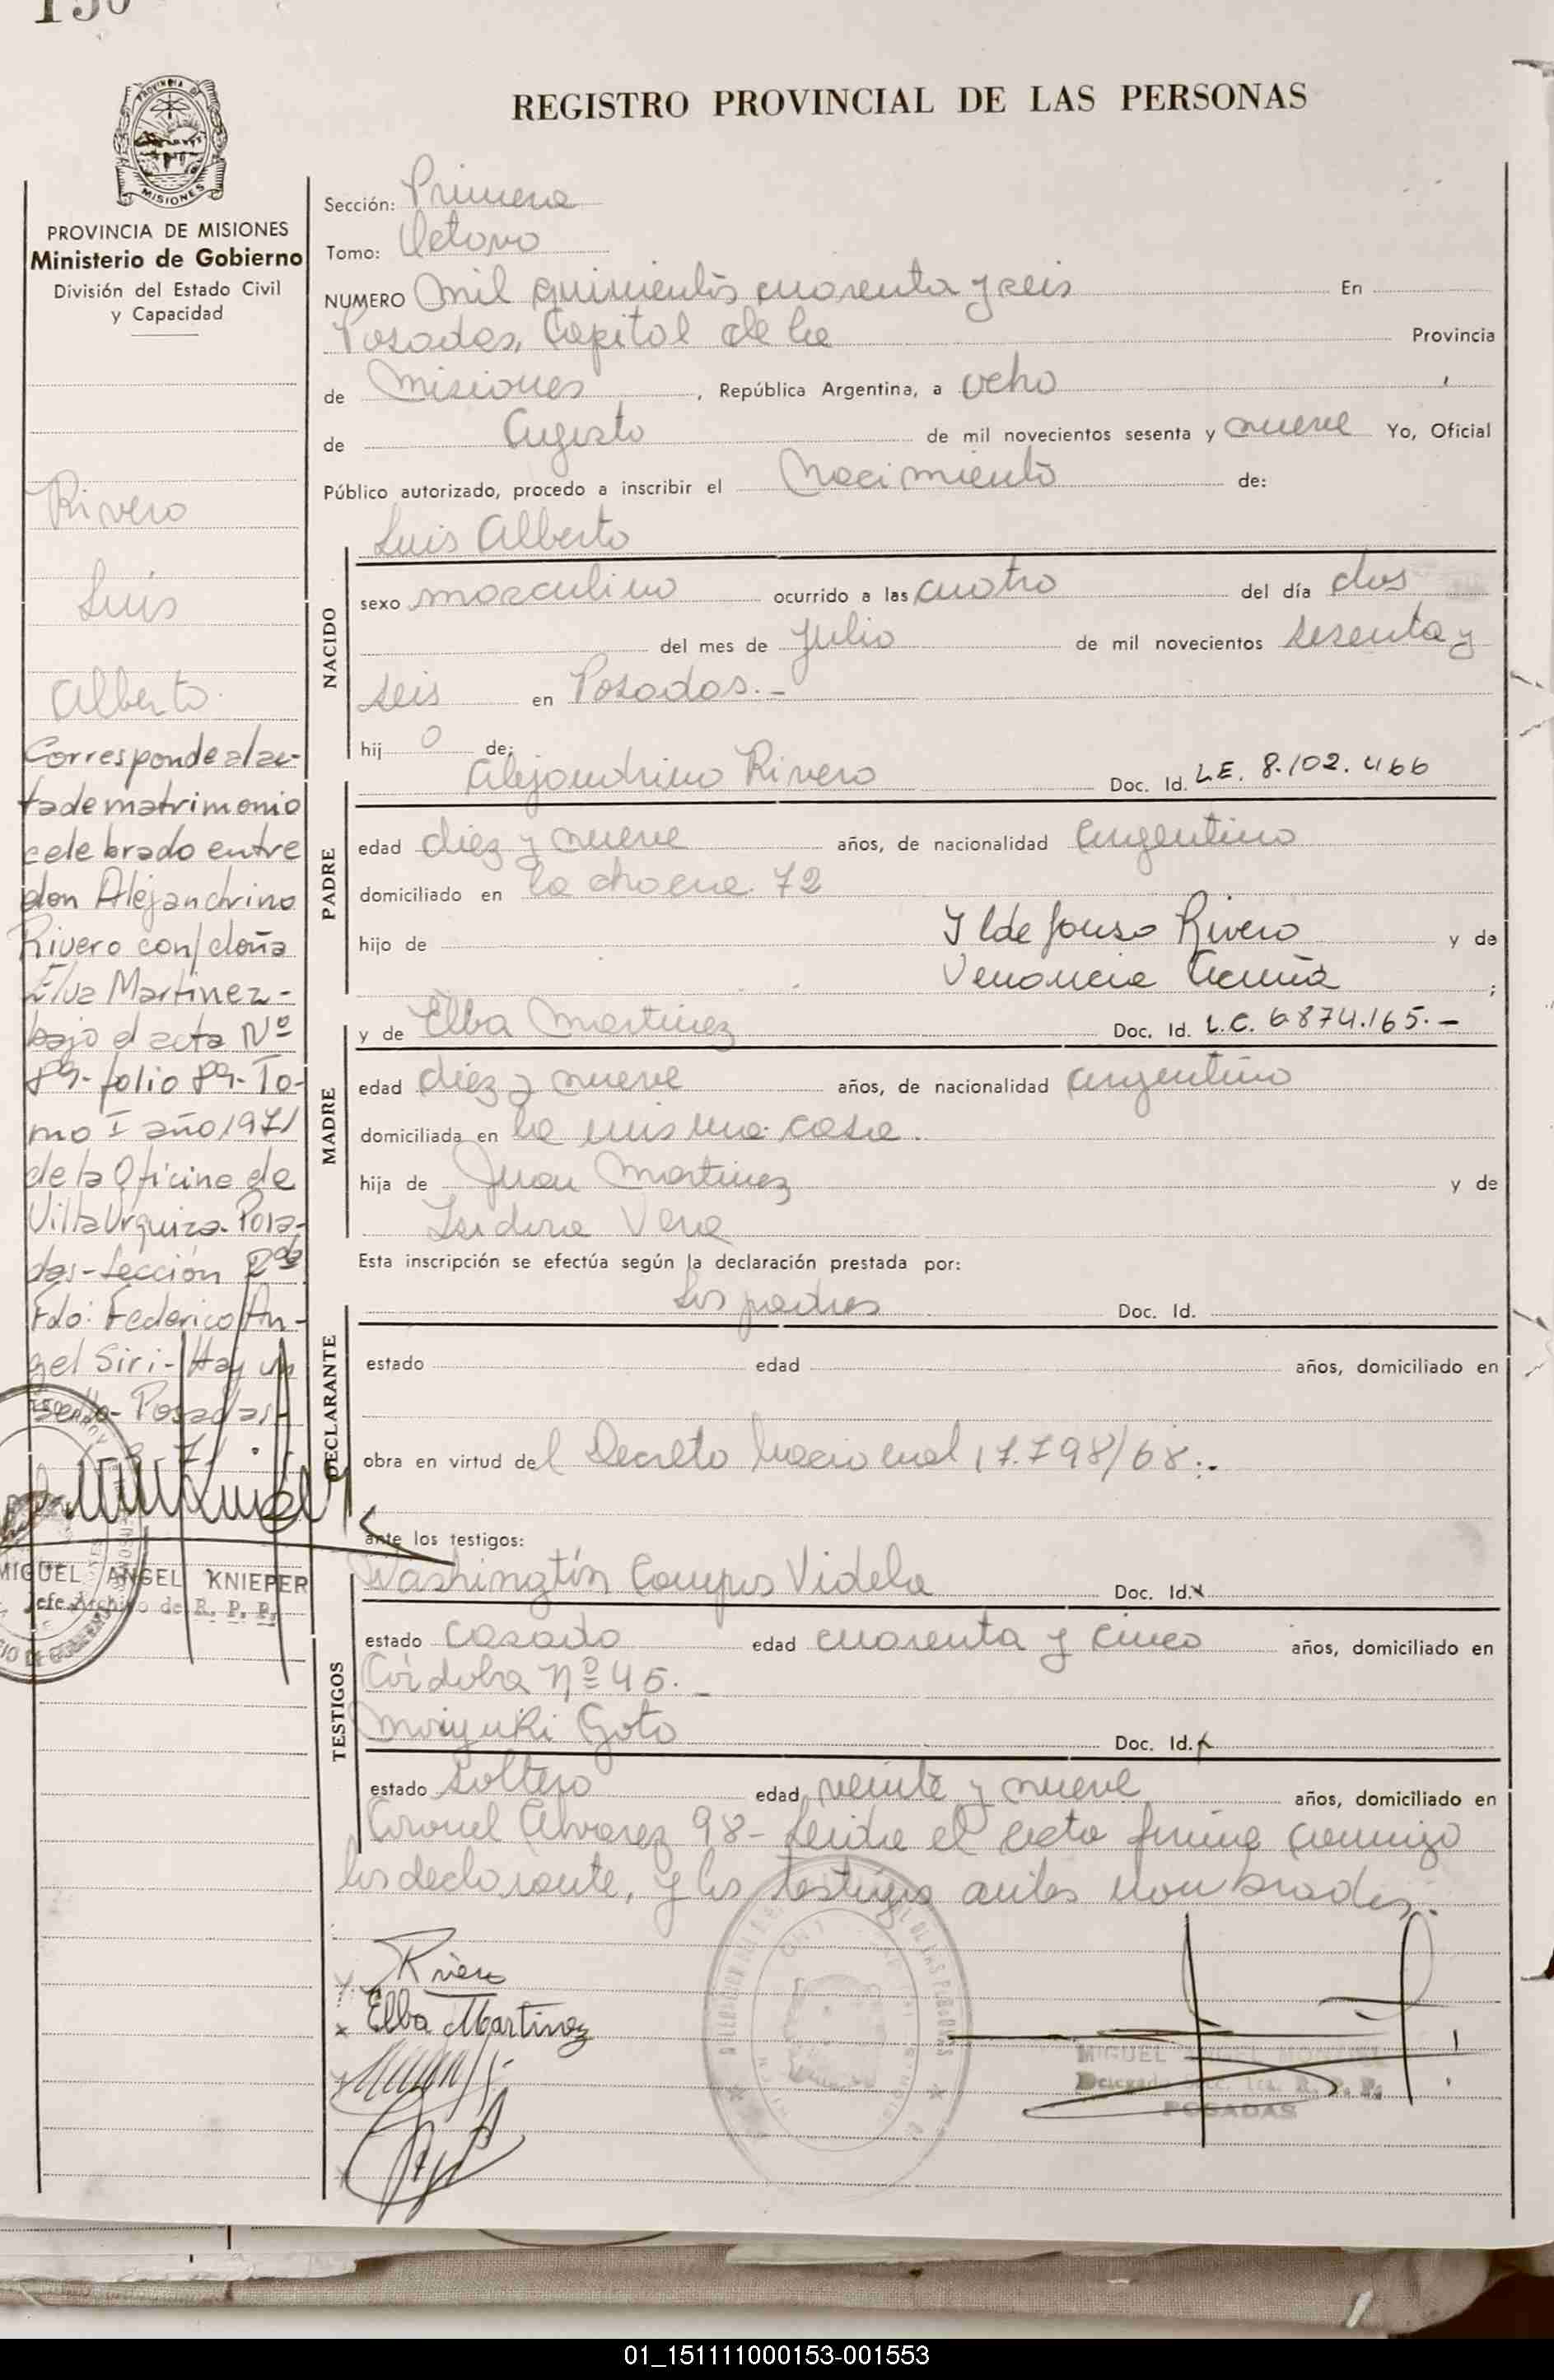 150
REGISTRO PROVINCIAL DE LAS PERSONAS
MISIONES
PROVINCIA DE MISIONES
Ministerio de Gobierno
División del Estado Civil
y Capacidad
Rivero
Luis
Alberto
Corresponde al ac-
ta de matrimonio
celebrado entre
don Alejandrino
Rivero con/doña
Elva Martinez-
bajo el acta Nº
89- folio 89- To-
mo I año 1971
de la Oficina de
Villa Urquiza- Posa-
das- Sección 2da
Fdo: Federico An-
gel Siri- Hay un
sello- Posadas-
MIGUEL ANGEL KNIEPER
Jefe Archivo de R. P. P.
Sección: Primera
Tomo: Octavo
NUMERO Mil quinientos cuarenta y seis En
Posadas, Capital de la Provincia
de Misiones, República Argentina, a ocho ,
de Agosto de mil novecientos sesenta y nueve Yo, Oficial
Público autorizado, procedo a inscribir el Nacimiento de:
Luis Alberto
NACIDO
sexo masculino ocurrido a las cuatro del día dos
del mes de Julio de mil novecientos sesenta y
seis en Posadas.-
hij o de:
Alejandrino Rivero Doc. Id. L.E. 8.102.466
PADRE
edad diez y nueve años, de nacionalidad argentino
domiciliado en la chacra 72
hijo de Ildefonso Rivero y de
Venancia Acuña ;
y de Elba Martinez Doc. Id. L.C. 6.874.165.-
MADRE
edad diez y nueve años, de nacionalidad argentino
domiciliada en la misma casa.
hija de Juan Martinez y de
Isidora Vera
Esta inscripción se efectúa según la declaración prestada por:
los padres Doc. Id.
DECLARANTE
estado edad años, domiciliado en
obra en virtud del Decreto Nacional 17.798/68.-
ante los testigos:
Washingtón Campos Videla Doc. Id. x
TESTIGOS
estado casado edad cuarenta y cinco años, domiciliado en
Córdoba Nº 45.-
Moriyuki Goto Doc. Id. x
estado soltero edad veinte y nueve años, domiciliado en
Coronel Alvarez 98- Leida el acta firma conmigo
los declarante, y los testigos antes nombrados.
Rivero
x Elba Martinez
MIGUEL ANGEL
POSADAS
01_151111000153-001553